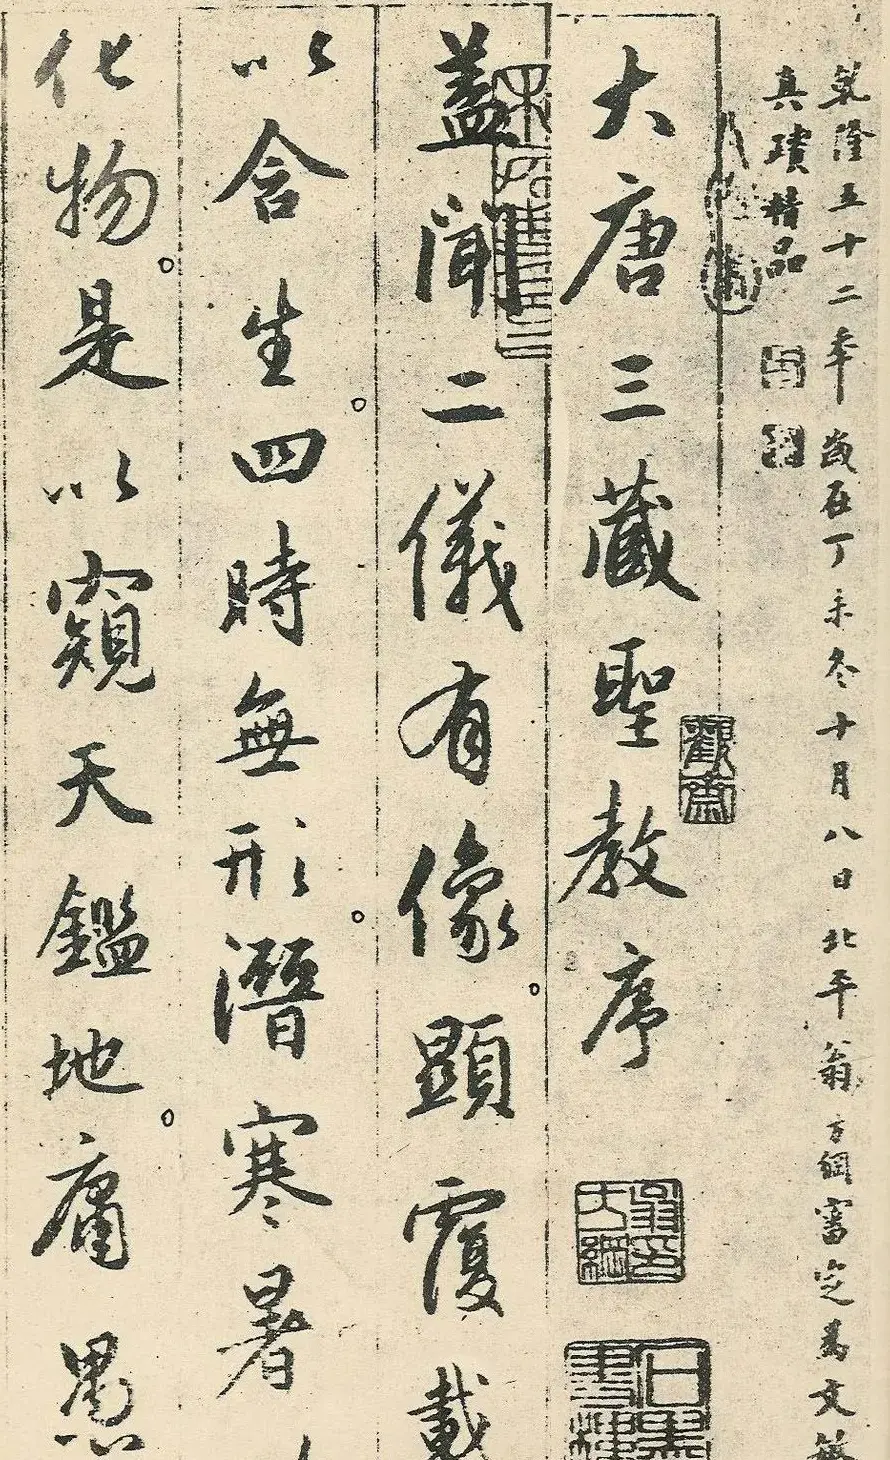 乾隆五十二年歲在丁未冬十月八日北平翁方綱審定爲文
真蹟精品
大唐三藏聖教序
蓋聞二儀有像顯覆載
以含生四時無形潛寒暑
化物是以窺天鑑地庸愚